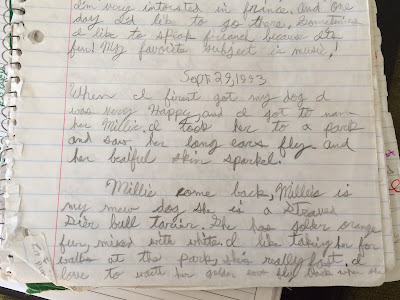 I'm very intorested in france. And one
day I'd like to go there. Sometimes
I like to speak because its
fun! My favorite subject is music!
Sept. 29, 1993
When I firest got my dog I
was very Happy, and I got to nam
her Millie. I took her to a park
and saw her long ears fly and
her beatful skin sparkel.
Millie come back, Millie is
my new dog she is a
bull tarrier. She has golden orange
fur, mixed with white. I like taking her for
walks at the park, she's really fast. I
love to her golden ears fly back when she